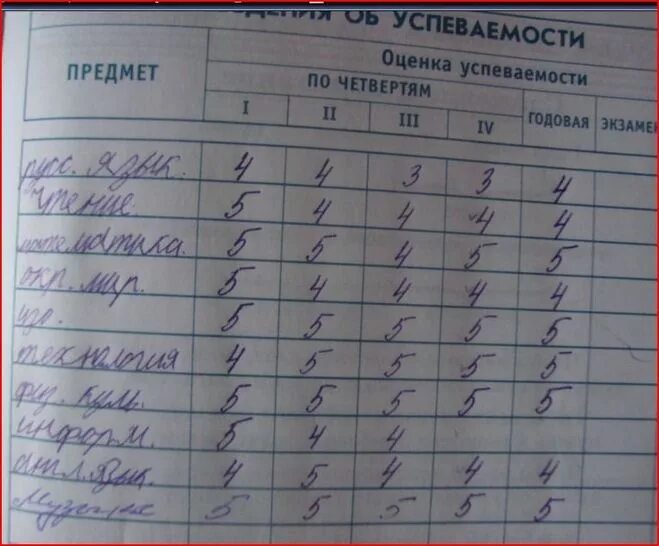 ДЕНИЯ ОБ УСПЕВАЕМОСТИ
ПРЕДМЕТ Оценка успеваемости
ПО ЧЕТВЕРТЯМ
I II III IV ГОДОВАЯ ЭКЗАМЕН
русс. язык. 4 4 3 3 4
Чтение. 5 4 4 4 4
математика. 5 5 4 5 5
окр. мир. 5 4 4 4 4
изо. 5 5 5 5 5
технология 4 5 5 5 5
физ. куль. 5 5 5 5 5
информ. 5 4 4
англ. язык. 4 5 4 4 4
Музыка 5 5 5 5 5